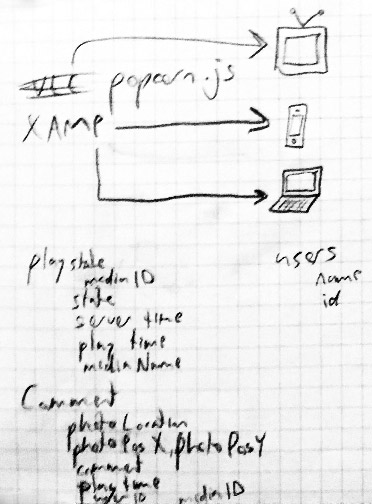 VLC popcorn.js
XAMP
playstate
mediaID
state
server time
play time
mediaName
users
name
id
Comment
photoLocation
photoPosX, photoPosY
comment
playtime
mediaID